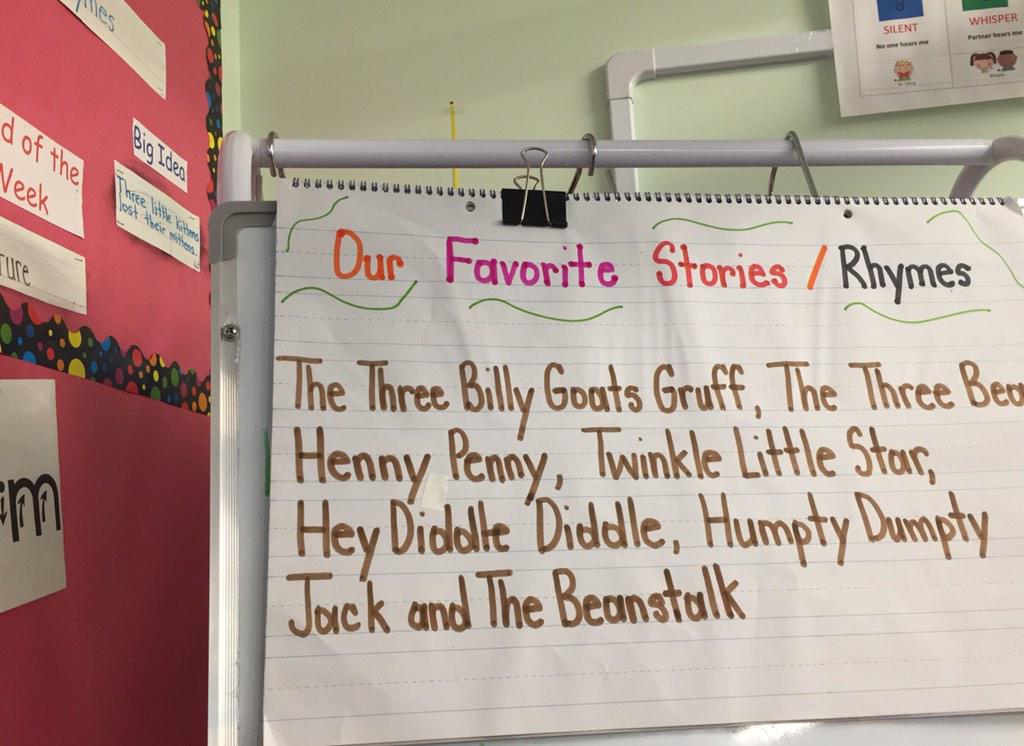 SILENT
No one hears me
WHISPER
Partner hears me
Whisper
d of the
Week
Big Idea
Three little kittens
lost their mittens.
Our Favorite Stories / Rhymes
The Three Billy Goats Gruff, The Three Bea
Henny Penny, Twinkle Little Star,
Hey Diddle Diddle, Humpty Dumpty
Jack and The Beanstalk